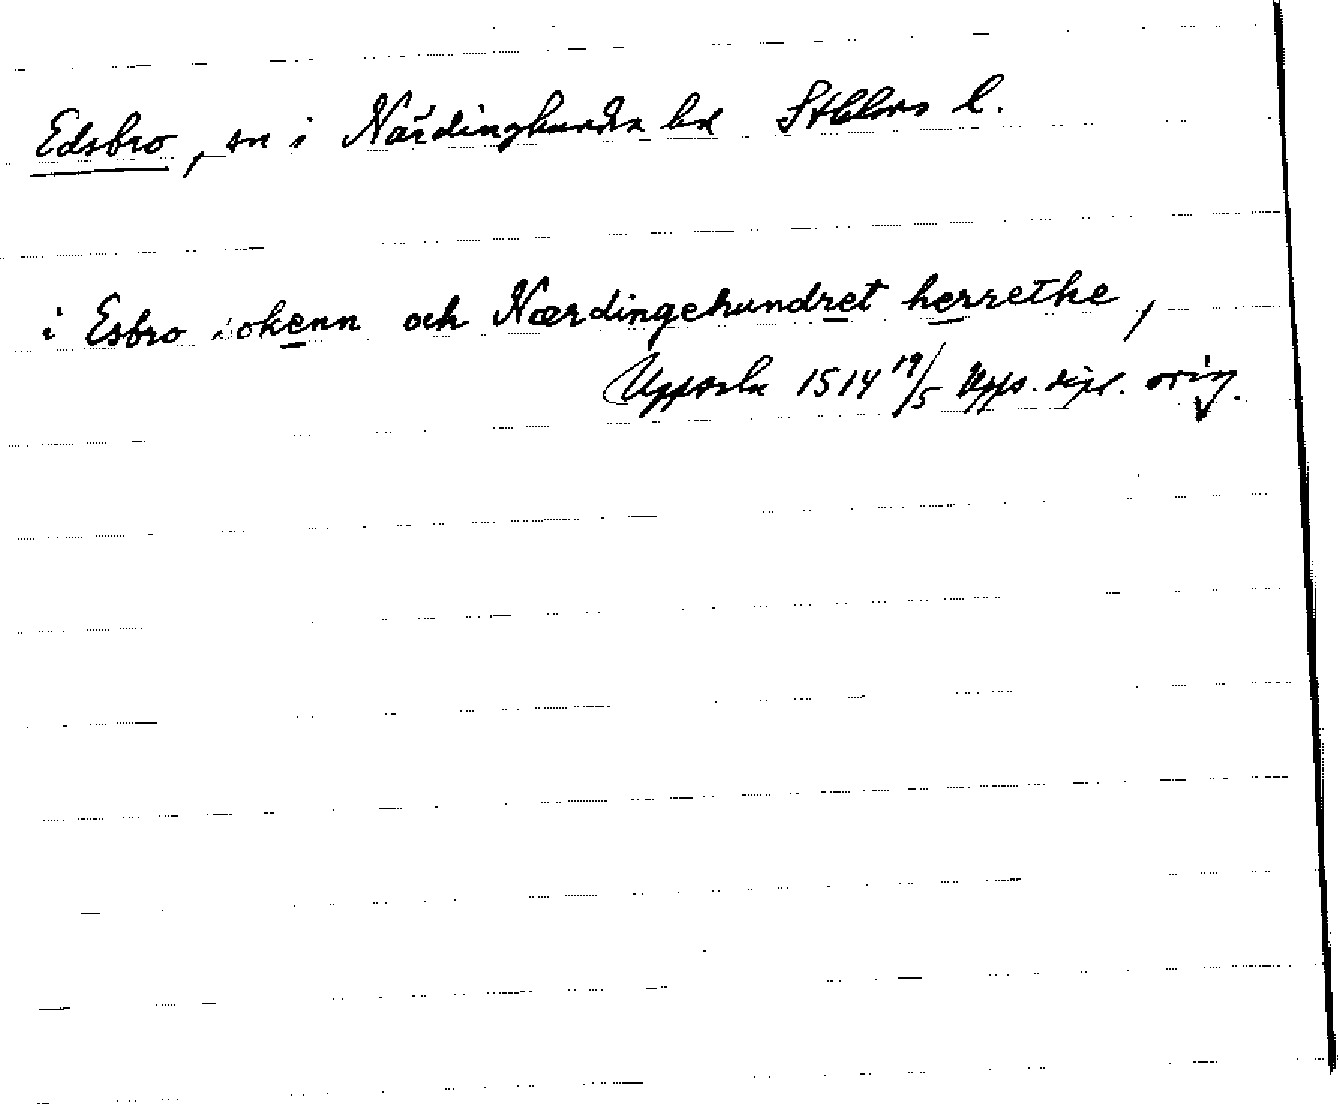 Edsbro, sn i Närdinghundra hd Sthlms l.
i Esbro sokenn och Nærdingehundret herrethe,
Uppsala 1514 19/5 Upps. dipl. orig.